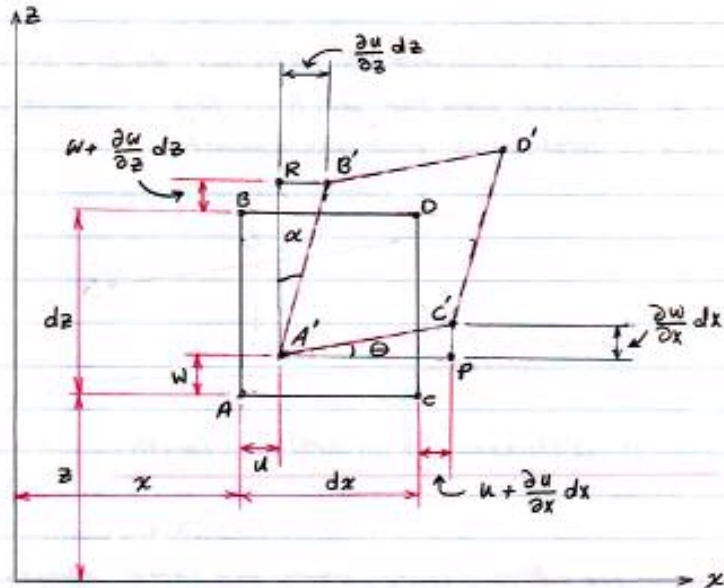 z
∂u/∂z dz
w + ∂w/∂z dz
R B' D'
B D
α
dz
C'
∂w/∂x dx
A'
θ
P
w
A C
u
z
x
dx
u + ∂u/∂x dx
x